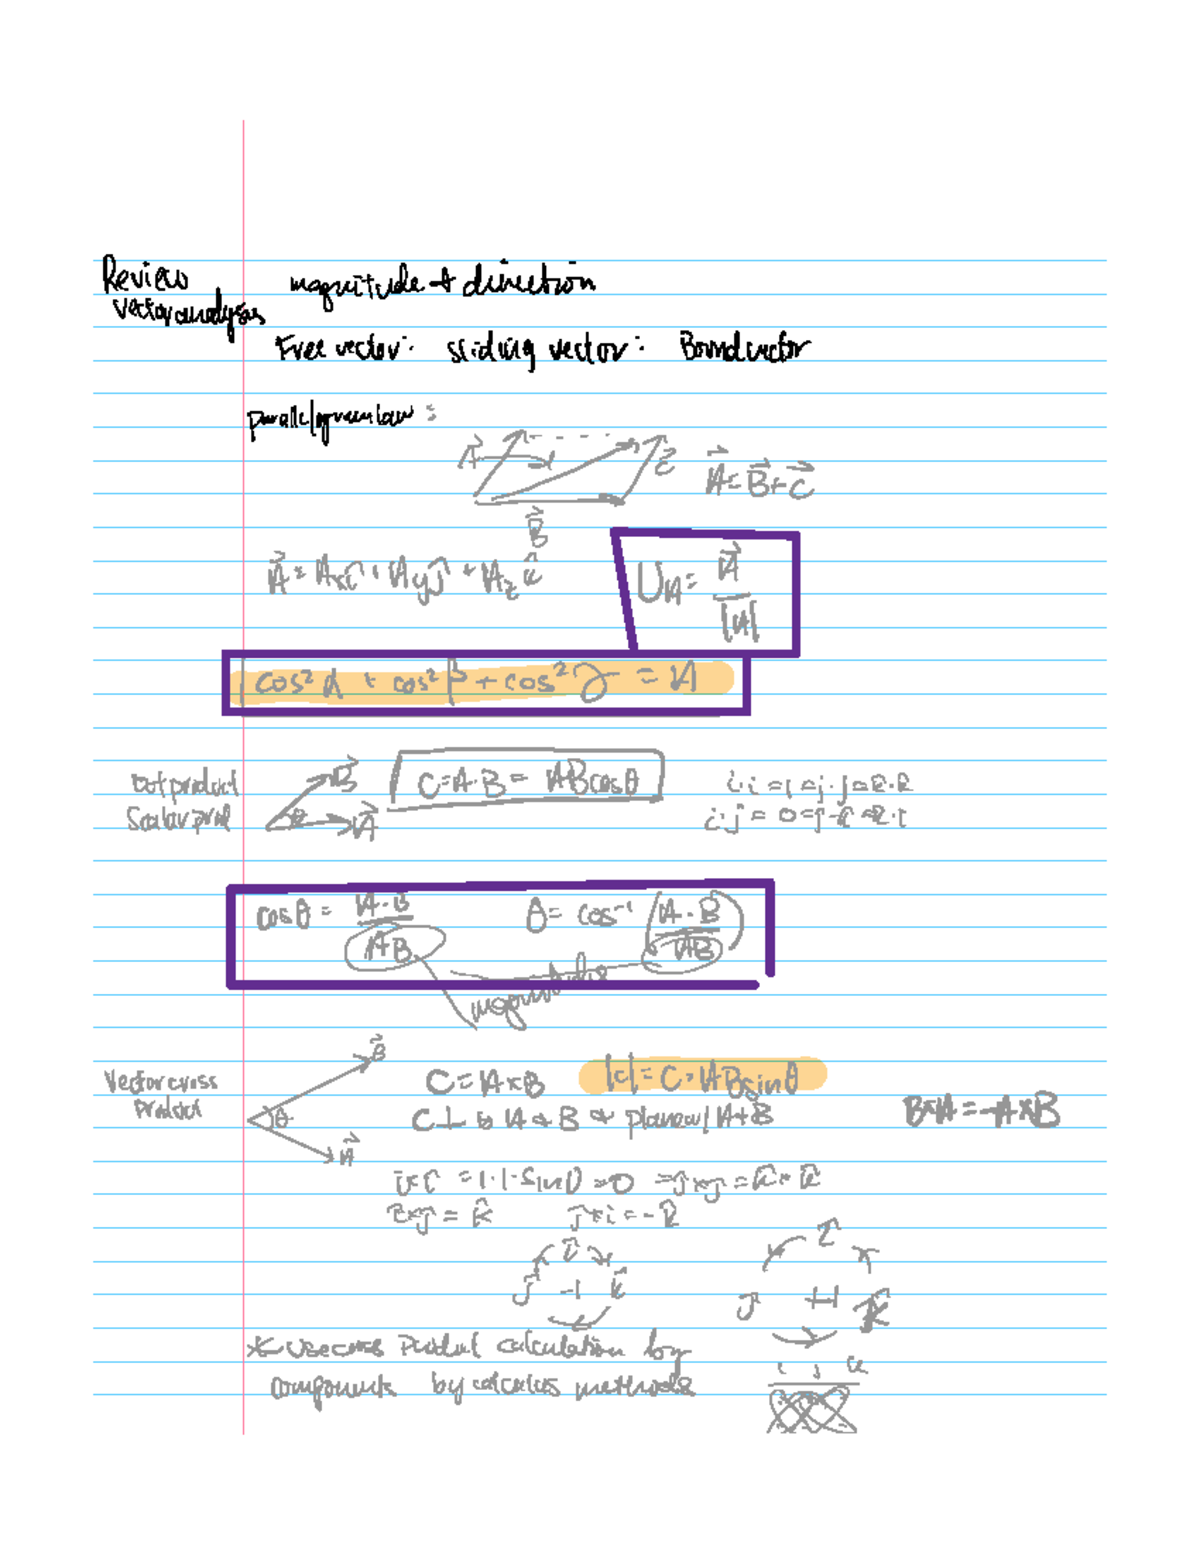 Review
vector analysis
magnitude + direction
Free vector: sliding vector: Bound vector
parallelogram law :
A⃗ C⃗ A⃗ = B⃗ + C⃗
B⃗
A⃗ = Axî + Ayĵ + Az k̂
U_A = A⃗ / |A|
cos²α + cos²β + cos²γ = A
Dot product
Scalar prod
B⃗
θ
A⃗
C = A·B = ABcosθ
i·i = 1 = j·j = k·k
i·j = 0 = j·k = k·i
cosθ = A·B / AB
θ = cos⁻¹ (A·B / AB)
magnitudes
Vector cross
Product
B⃗
θ
A⃗
C = A×B |C| = C = ABsinθ
C ⊥ to A & B or plane w/ A+B
B×A = -A×B
i×i = 1·1·sin0 = 0 = j×j = k̂×k̂
i×j = k̂ j×i = -k̂
i
j -1 k
i
j + k
* use cross Product calculation by
components by calculus methods
i j k